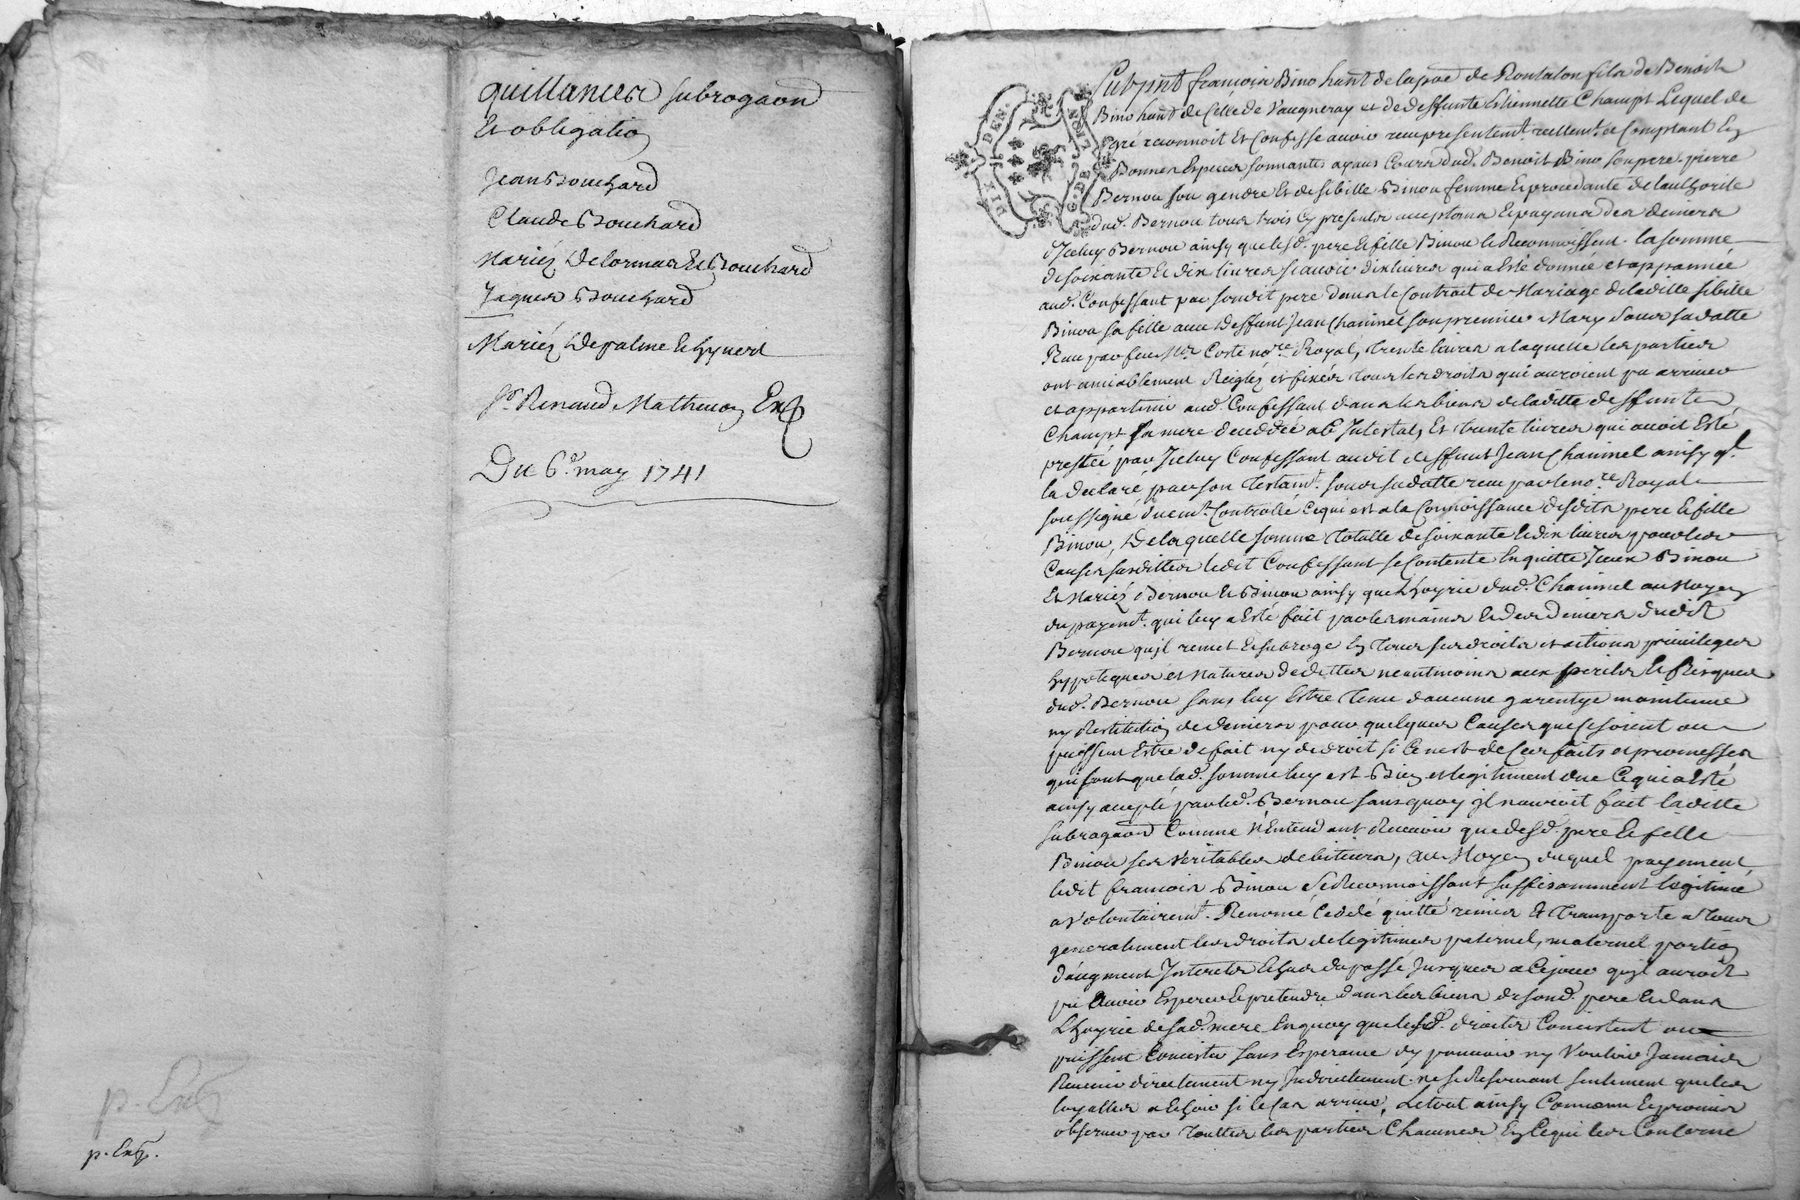 quittances subrogaon
et obligation
Jean Bouchard
Claude Bouchard
Mariéz Delormas et Bouchard
Jaques Bouchard
Mariéz Depalme et hyvert
Sr. Renaud Mathevon
Du 6e. may 1741
p. Ext.
p. Ext.
DIX DEN. G. DE LION
Fut pnt francois Binou hant de la pae de Rontalon fils de Benoist
Binou hant de Celle de Vaugneray et de deffunte Estiennette Champt Lequel de
gré reconnoit Et Confesse avoir reçu presentemt. reellemt. et Comptant En
Bonnes Especes sonnantes ayans Cours dud. Benoist Binou son pere, pierre
Bernou son gendre Et de sibille Binou femme Et procedante de l'authorité
dud. Bernou tous trois Cy presents acceptans Et payans des deniers
d'Iceluy Bernou ainsy que lesd. pere et fille Binou le Reconnoissent. la somme
de soixante et dix livres scavoir dix livres qui a Esté donnée et appannée
aud. Confessant par sondit pere dans le Contrait de Mariage de laditte sibille
Binou sa fille avec Deffunt Jean Chaninel son premier Mary sous sa datte
Reçu par feu Mr Coste nore. Royal, trente livres a laquelle les parties
ont amiablement Reiglés et fixés tous les droits qui auroient pu arriver
et appartenir aud. Confessant dans les biens de laditte deffunte
Champt sa mere decedée ab Intestat, Et trente livres qui avoit Esté
prestée par Iceluy Confessant audit deffunt Jean Chaninel ainsy ql.
la declaré par son testamt. sous sa datte reçu par le nore. Royal
soussigné duemt. Controllé Ce qui est a la Connoissance desdits pere et fille
Binou, De laquelle somme totalle de soixante et dix livres pour les
Causes susdittes ledit Confessant se Contente En quitte Iceux Binou
Et Mariéz Bernou et Binou ainsy que l'hoyrie dud. Chaninel au Moyen
du payemt. qui luy a Esté fait par les mains et des deniers dudit
Bernou qu'il remet Et subroge En tous ses droits et actions privileges
hypoteques et Natures de dettes neantmoins aux perils et Risques
dud. Bernou sans luy Estre tenu d'aucune garentye maintenue
ny Restitution de deniers pour quelques Causes que ce soient ou
puissent Estre de fait ny de droit si Ce n'est de ses faits et promesses
qui sont que lad. somme luy est Bien et legitiment due Ce qui a Esté
ainsy accepté par led. Bernou sans quoy il n'auroit fait laditte
subrogaon Comme n'Entendant Recevoir que desd. pere et fille
Binou ses veritables debiteurs, Au Moyen duquel payement
ledit francois Binou se Reconnoissant suffisamment legitimé
a volontairemt. Renoncé Cedé quitté remis Et transporté a tous
generalement les droits de legitimes paternel, maternel portion
d'augment Interets Echus du passé Jusques a Ce jour qu'il auroit
pu avoir Esperer et pretendre dans les biens de sond. pere et dans
L'hoyrie de sad. mere En quoy que lesd. droits Consistent ou
puissent Consister sans Esperance d'y pouvoir ny vouloir Jamais
Revenir directement ny Indirectement. ne se Reservant seulement que les
loyalles a Echoir si le Cas arrive, Le tout ainsy Convenu Et promis
observer par touttes les parties Chacunes En Ce qui les Concerne